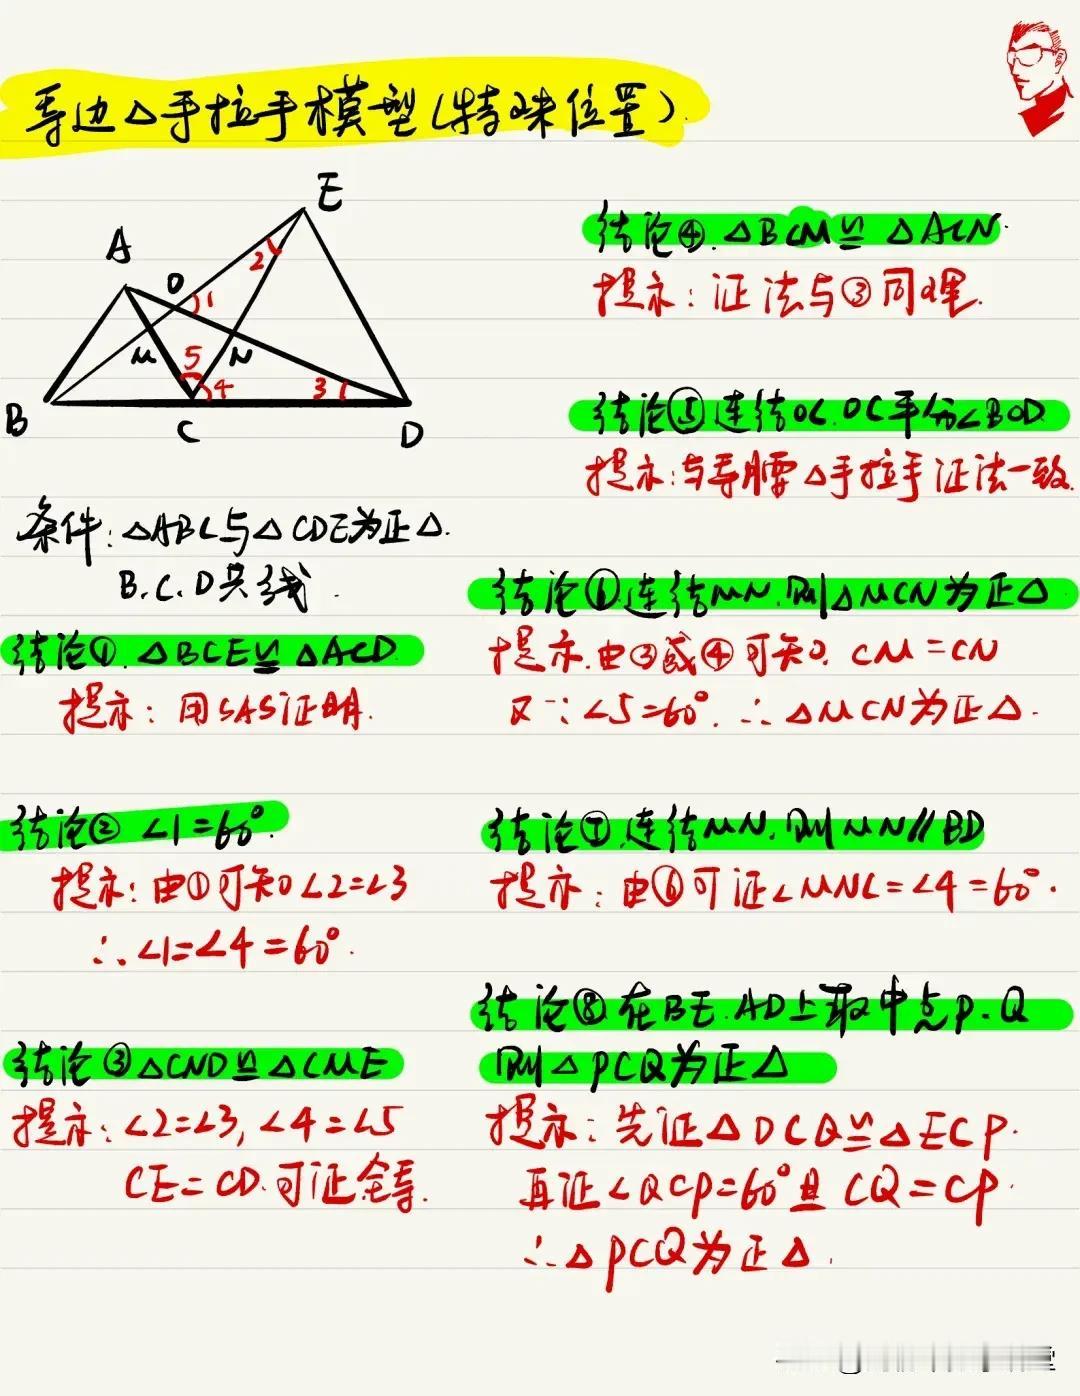 等边△手拉手模型(特殊位置).
E
A
O
2
1
M
5
N
4
3
B
C
D
条件:△ABC与△CDE为正△.
B.C.D共线.
结论①.△BCE≌△ACD
提示:用SAS证明.
结论② ∠1=60°.
提示:由①可知∠2=∠3
∴∠1=∠4=60°.
结论③△CND≌△CME
提示:∠2=∠3,∠4=∠5
CE=CD.可证全等.
结论④.△BCM≌△ACN.
提示:证法与③同理.
结论⑤连结OC.OC平分∠BOD
提示:与等腰△手拉手证法一致.
结论⑥.连结MN.则△MCN为正△
提示.由③或④可知.CM=CN
又∵∠5=60°.∴△MCN为正△.
结论⑦.连结MN.则MN∥BD
提示:由⑥可证∠MNC=∠4=60°.
结论⑧.在BE.AD上取中点P.Q
则△PCQ为正△
提示:先证△DCQ≌△ECP.
再证∠QCP=60°且CQ=CP.
∴△PCQ为正△.